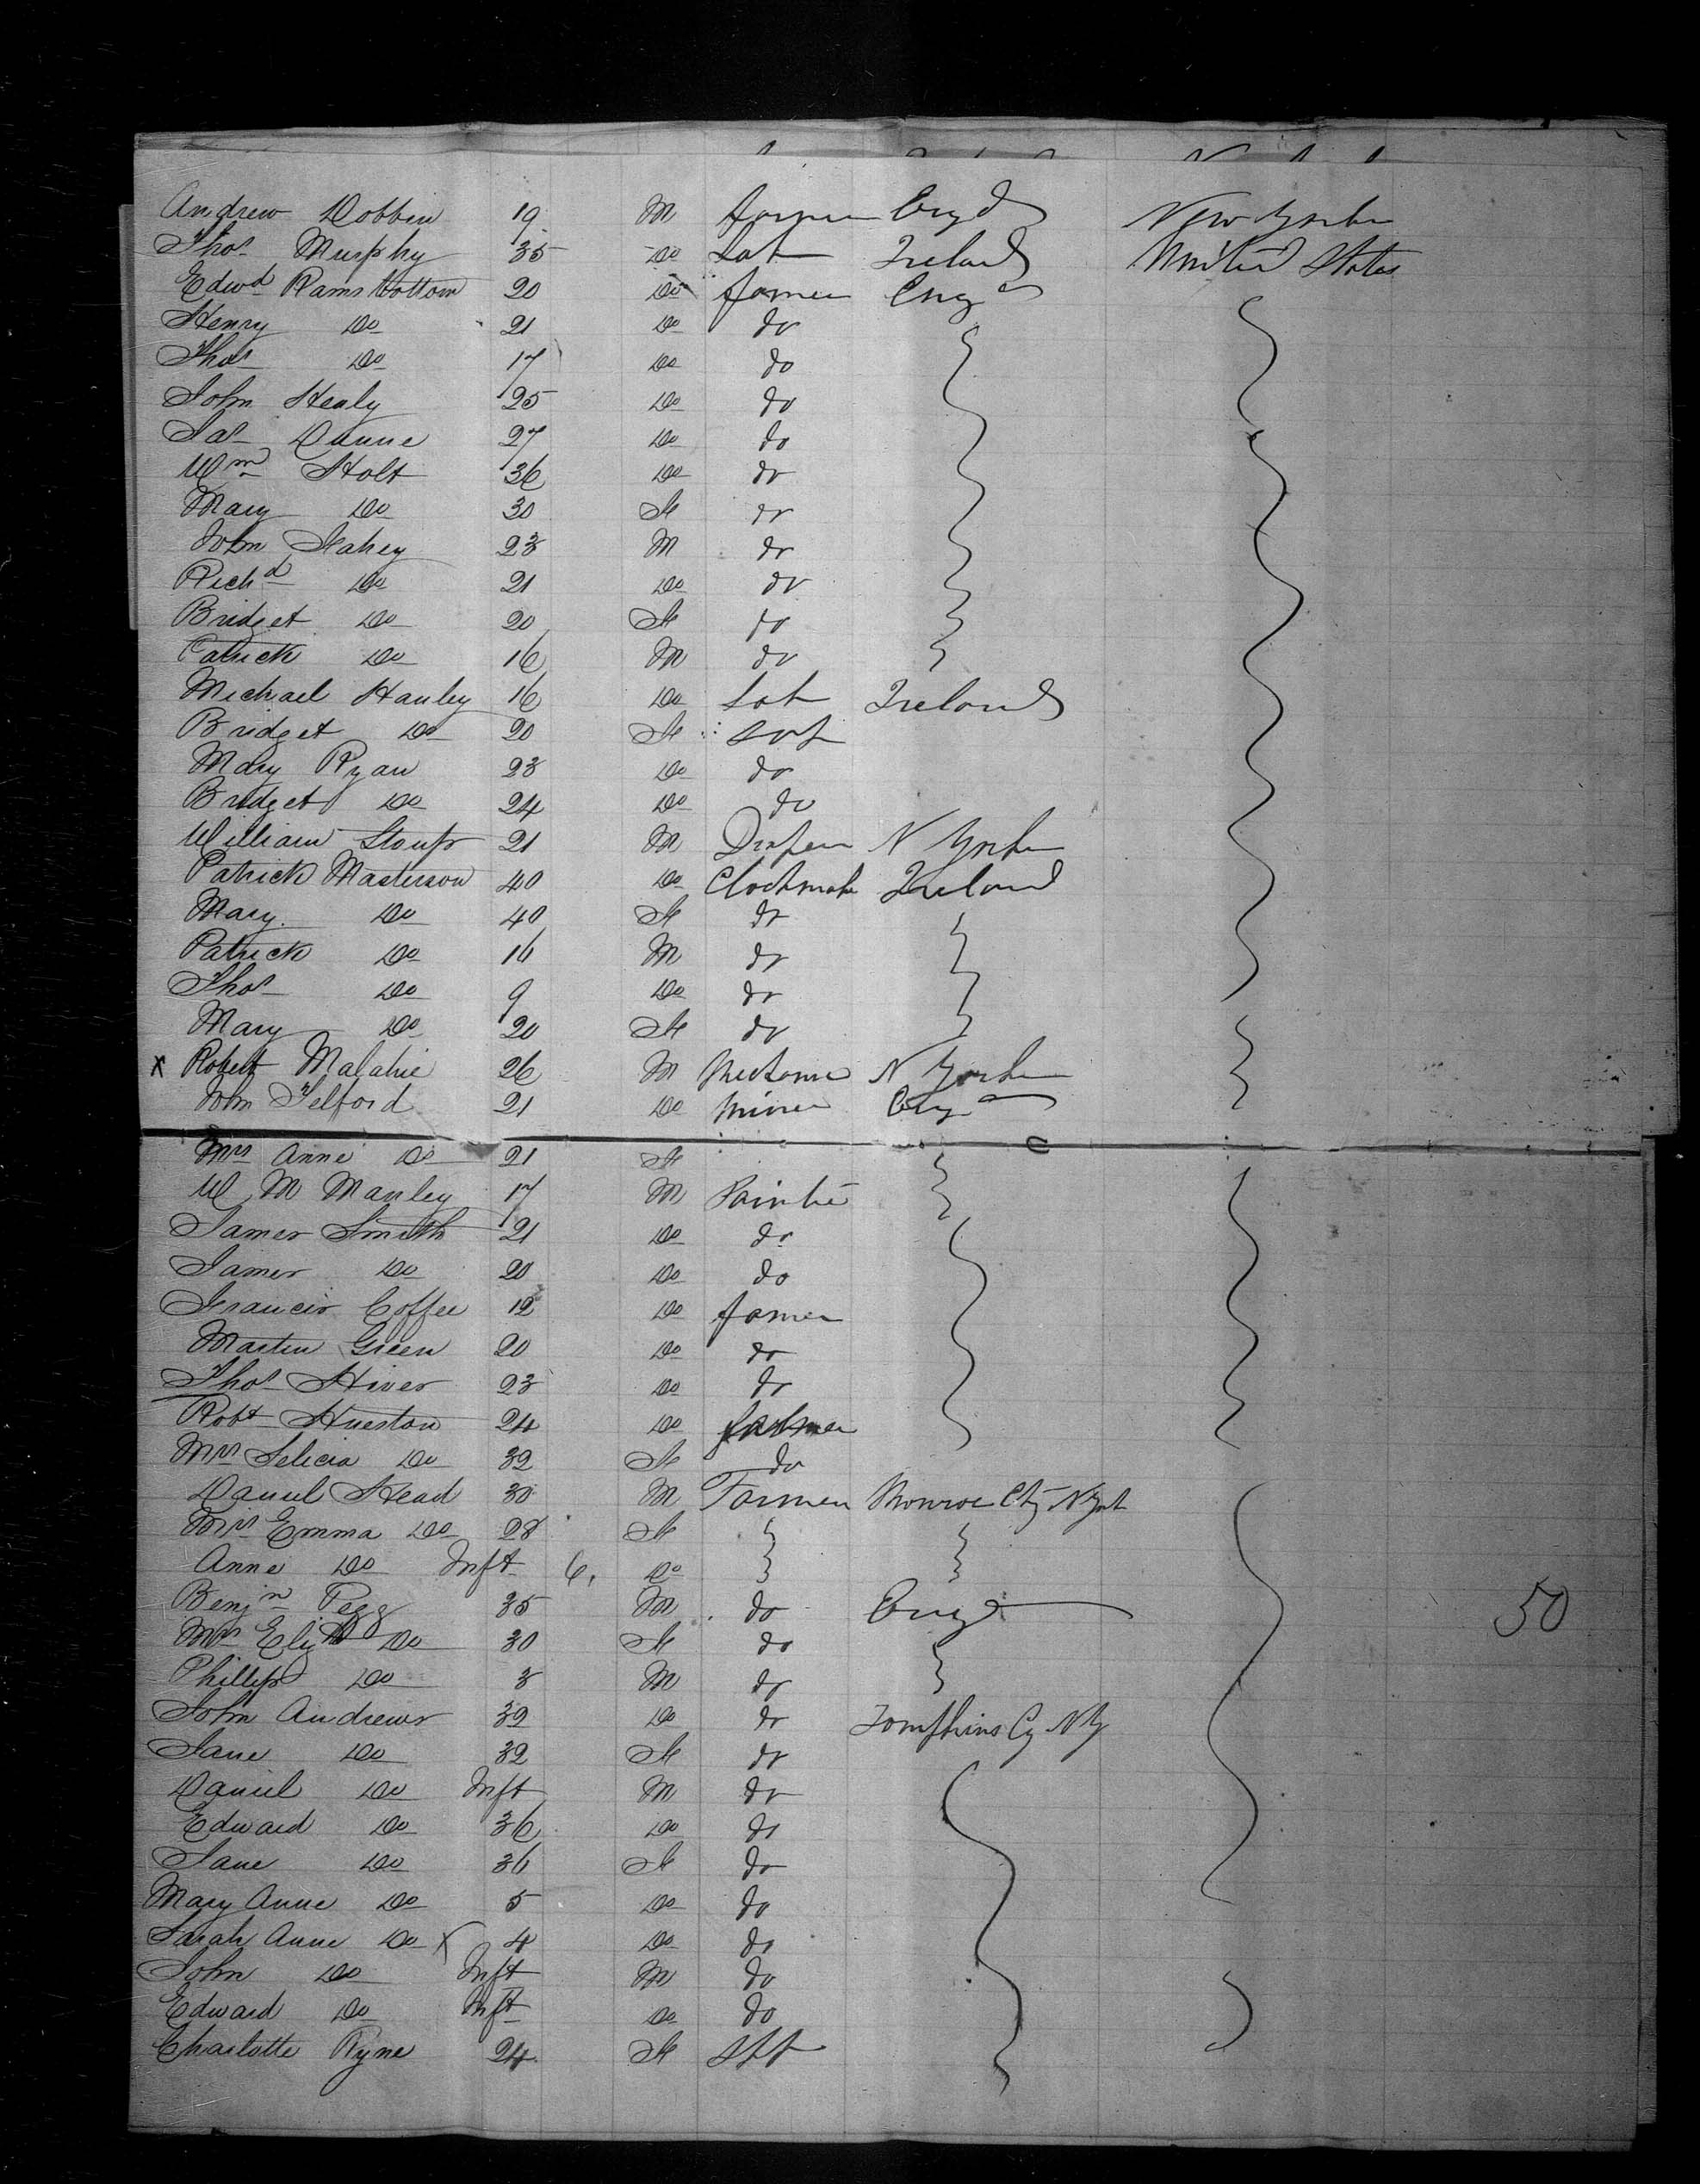 Andrew Dobbin 19 M farmer Engd New York
Thos Murphy 35 Do Lab Ireland United States
Edwd Ramsbottom 20 Do farmer Engd
Henry Do 21 Do do
Thos Do 17 Do do
John Healy 25 Do do
Jas Dunne 27 Do do
Wm Holt 36 Do do
Mary Do 30 F do
John Fahey 23 M do
Richd Do 21 Do do
Bridget Do 20 F do
Patrick Do 16 M do
Michael Hanley 16 Do Lab Ireland
Bridget Do 20 F
Mary Ryan 23 Do do
Bridget Do 24 Do do
William Stoup 21 M Draper N York
Patrick Masterson 40 Do Clockmak Ireland
Mary Do 40 F do
Patrick Do 16 M do
Thos Do 9 Do do
Mary Do 20 F do
x Robert Malahie 26 M N York
John Telford 21 Do Miner Eng
Mrs Anne Do 21 F
W M Manley 17 M Painter
James Smith 21 Do do
James Do 20 Do do
Francis Coffee 12 Do farmer
Martin Green 20 Do do
Thos Hives 23 Do do
Robt Hueston 24 Do
Mrs Felicia Do 32 F do
Daniel Head 30 M Farmer Monroe Cty N York
Mrs Emma Do 28 F
Anne Do Inft 6, Do
Benjn Pegg 35 M do Engd 50
Mrs Elizth Do 30 F do
Phillip Do 3 M do
John Andrews 32 Do do Tompkins Cy NY
Jane Do 32 F do
Daniel Do Inft M do
Edward Do 36 Do do
Jane Do 36 F do
Mary Anne Do 5 Do do
Sarah Anne Do x 4 Do do
John Do Inft M do
Edward Do Inft Do do
Charlotte Ryne 24 F